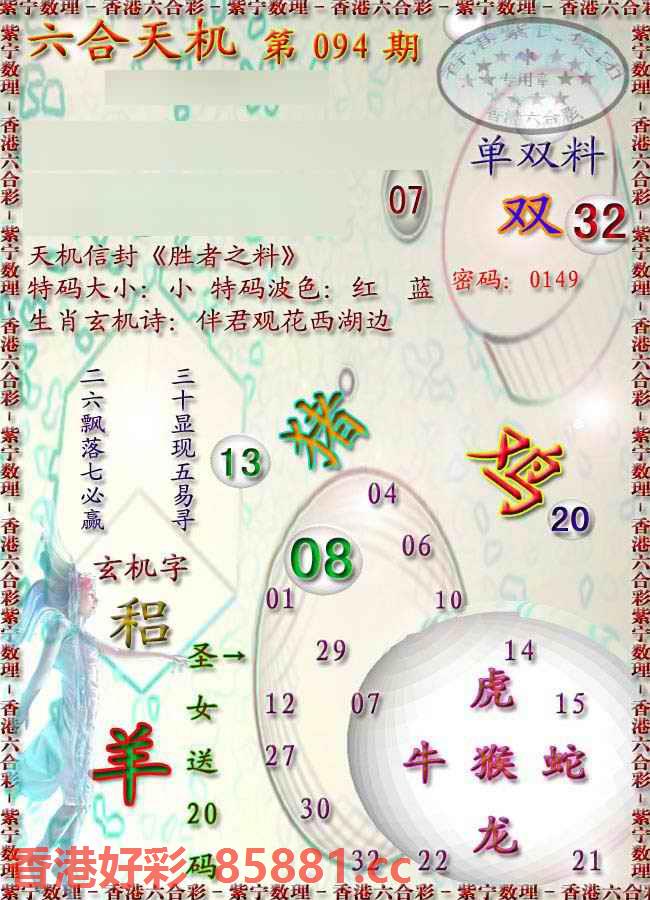 紫宁数理－香港六合彩－紫宁数理－香港六合彩－紫宁数理－香港六合彩
六合天机 第 094 期
专用章
香港六合彩
单双料
双 32
07
天机信封《胜者之料》
特码大小：小 特码波色：红 蓝
密码：0149
生肖玄机诗：伴君观花西湖边
三十显现五易寻
二六飘落七必赢
13
猪
鸡
20
04
08
06
玄机字
01
10
29
14
圣女送20码
→
羊
12
07
虎
15
27
牛 猴 蛇
30
龙
32
22
21
香港好彩 85881.cc
紫宁数理－香港六合彩－紫宁数理－香港六合彩－紫宁数理－香港六合彩